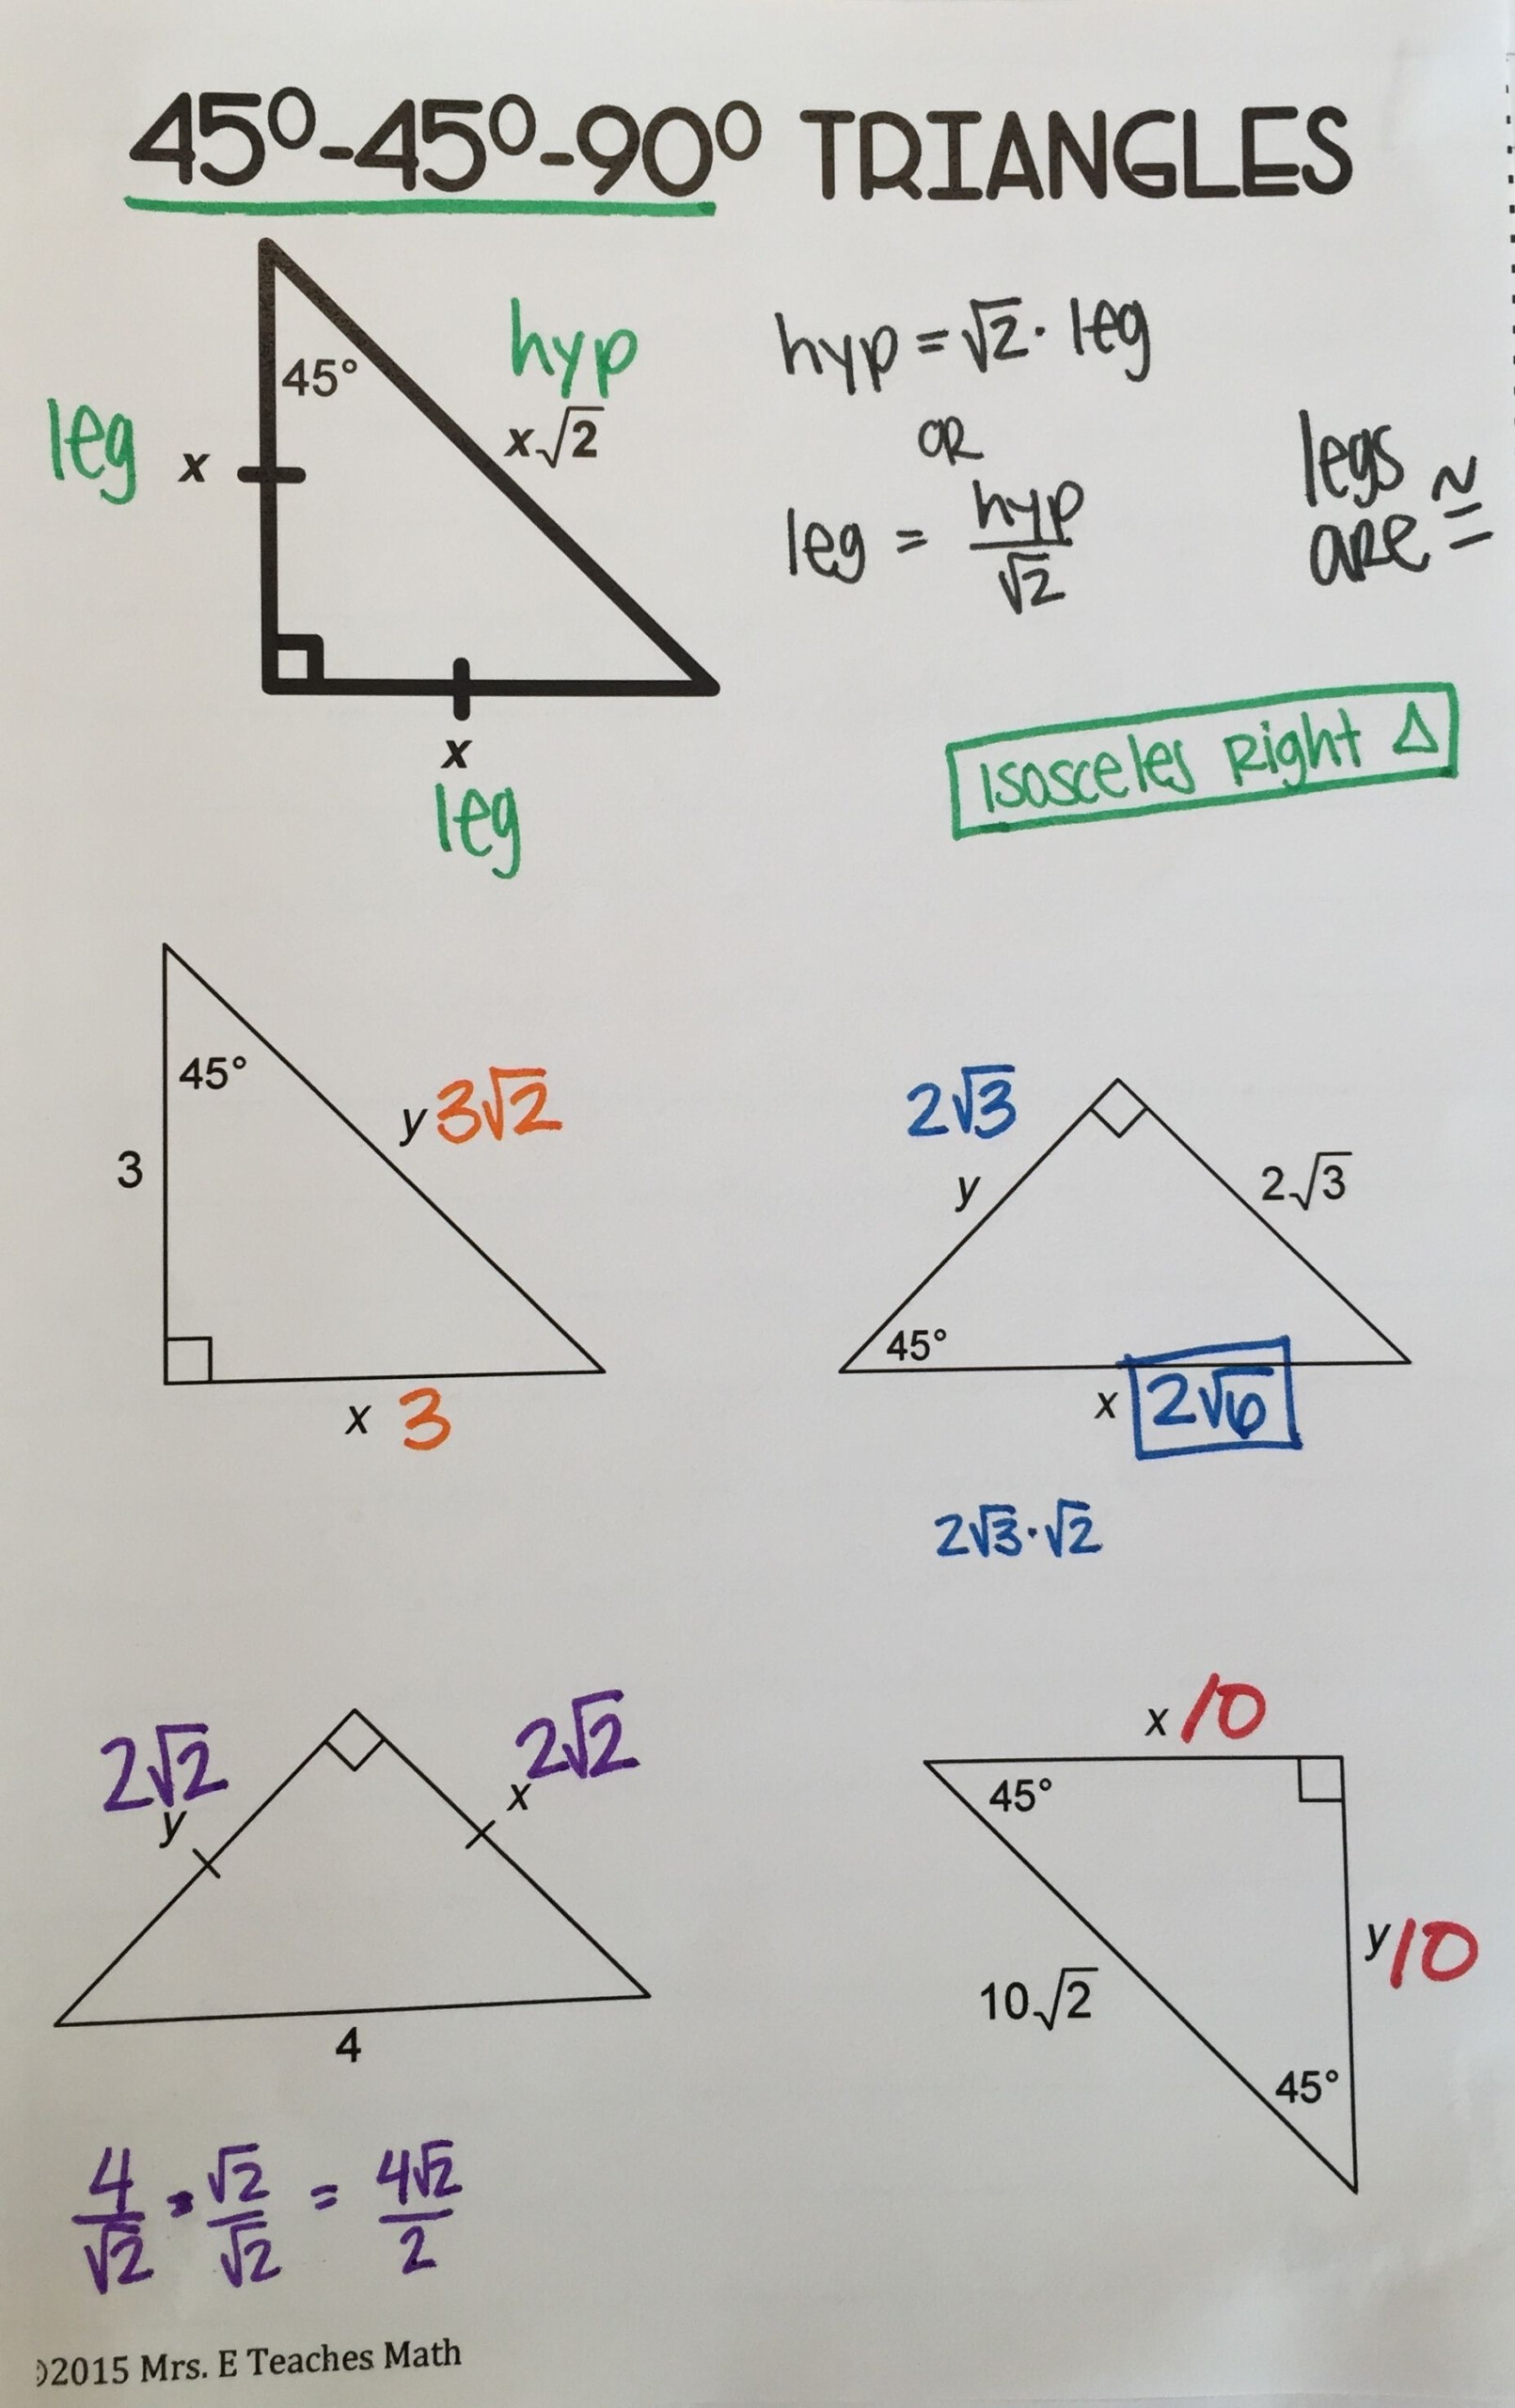 45°-45°-90° TRIANGLES
45°
hyp
x√2
leg x
x
leg
hyp = √2 · leg
OR
leg = hyp/√2
legs
are ≅
Isosceles Right △
45°
3
y 3√2
x 3
2√3
y
2√3
45°
x 2√6
2√3 · √2
2√2
y
2√2
x
4
4/√2 · √2/√2 = 4√2/2
x 10
45°
y 10
10√2
45°
©2015 Mrs. E Teaches Math